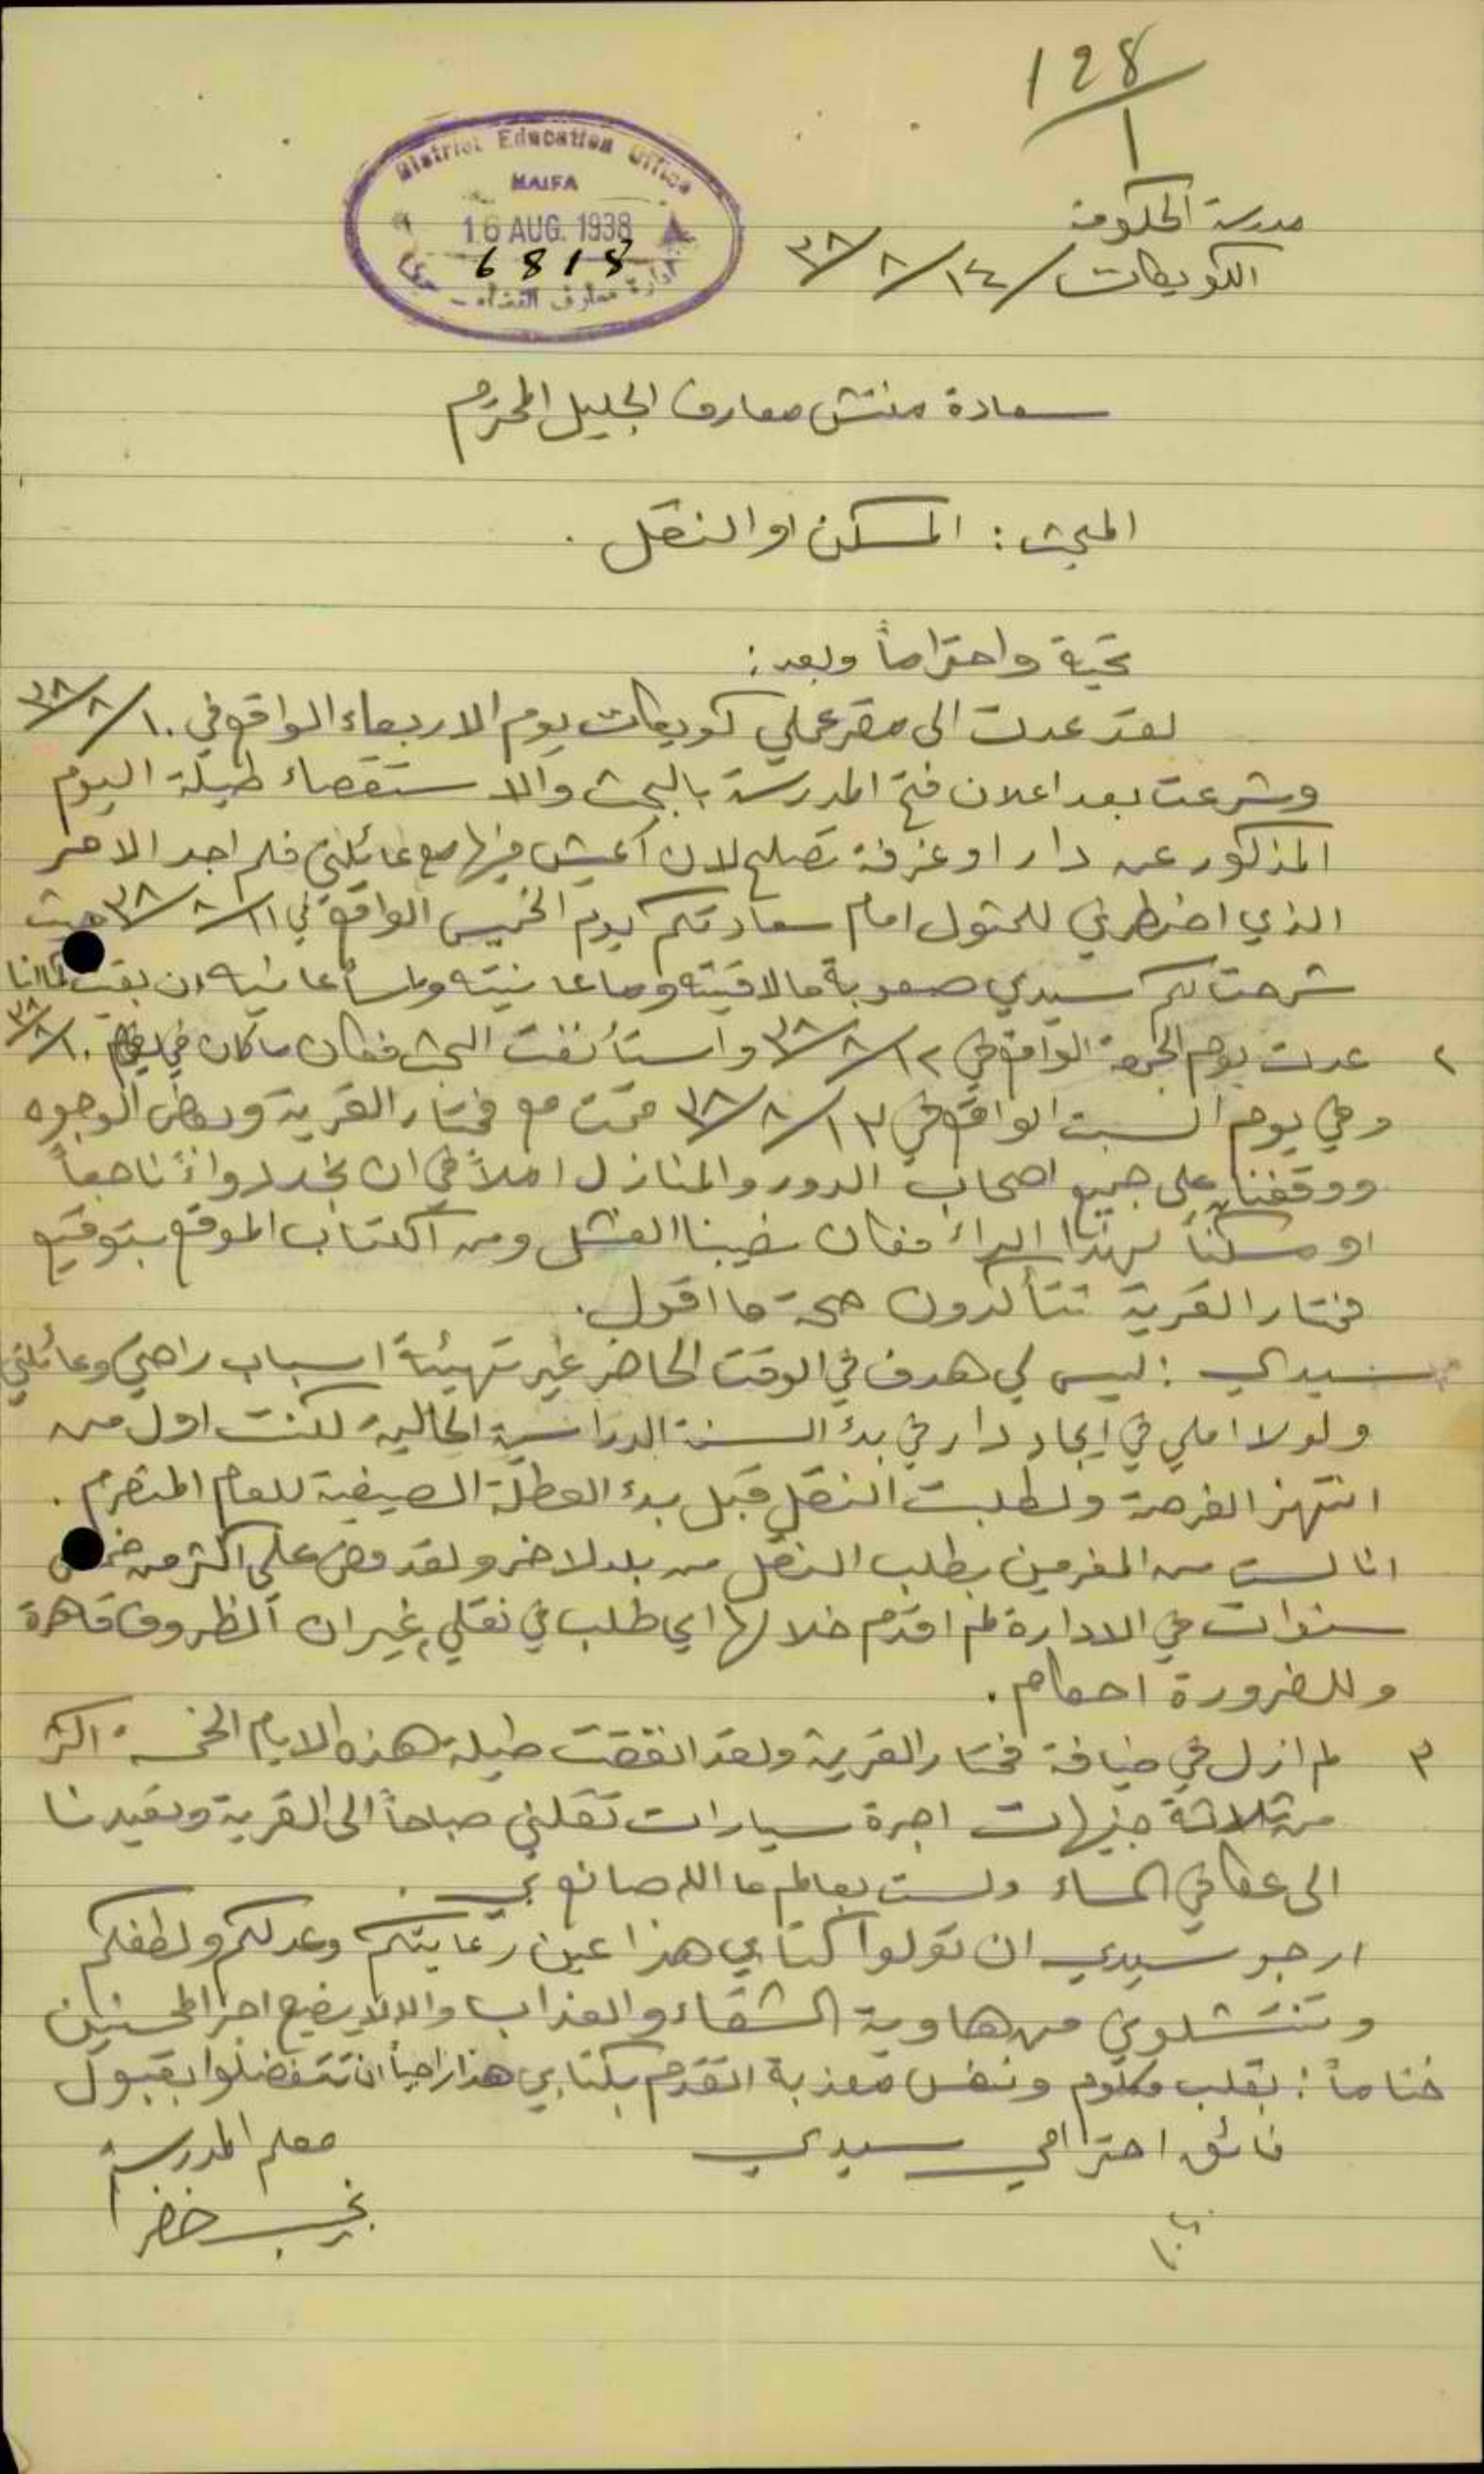 128
1
District Education Office
HAIFA
16 AUG. 1938
6818
ادارة معارف القضاء - حيفا
مدرسة الحكومة
الكويكات / ١٤/٨/٣٨
سعادة مفتش معارف الجليل المحترم
المبحث : المسكن او النقل .
تحية واحتراماً وبعد :
لقد عدت الى مقر عملي كويكات يوم الاربعاء الواقع في ١٠/٨/٣٨
وشرعت بعد اعلان فتح المدرسة بالبحث والاستقصاء طيلة اليوم
المذكور عن دار او غرفة تصلح لان أعيش فيها مع عائلتي فلم اجد الامر
الذي اضطرني للمثول امام سعادتكم يوم الخميس الواقع في ١١/٨/٣٨ حيث
شرحت لكم سيدي صعوبة ما لاقيته وما عانيته وما سأعانيه ان بقيت كما انا
٢ عدت يوم الجمعة الواقع في ١٢/٨/٣٨ واستأنفت البحث فكان ما كان في ١٠/٨/٣٨
وفي يوم السبت الواقع في ١٣/٨/٣٨ قمت مع مختار القرية وبعض الوجوه
ووقفنا على جميع اصحاب الدور والمنازل املاً في ان نجد دواءً ناجعاً
او مسكناً لهذا الداء فكان نصيبنا الفشل ومن الكتاب الموقع بتوقيع
مختار القرية تتأكدون صحة ما اقول.
سيدي : ليس لي هدف في الوقت الحاضر غير تهيئة اسباب راحتي وعائلتي
ولولا املي في ايجاد دار في بدء السنة الدراسية الحالية لكنت اول من
انتهز الفرصة ولطلبت النقل قبل بدء العطلة الصيفية للعام المنصرم .
انا لست من المغرمين بطلب النقل من بلد لاخر ولقد مضى علي اكثر من خمس
سنوات في الادارة لم اقدم خلالها اي طلب في نقلي، غير ان الظروف قاهرة
وللضرورة احكام .
٣ لم ازل في ضيافة مختار القرية ولقد انفقت طيلة هذه الايام الخمسة اكثر
من ثلاثة جنيهات اجرة سيارات تقلني صباحاً الى القرية وتعيدنا
الى عكا في المساء ولست بعالم ما الله صانع بي .
ارجو سيدي ان تولوا كتابي هذا عين رعايتكم وعدلكم ولطفكم
وتنتشلوني من هاوية الشقاء والعذاب والله لا يضيع اجر المحسنين
ختاماً : بقلب مكلوم ونفس معذبة اتقدم بكتابي هذا راجياً ان تتفضلوا بقبول
فائق احترامي سيدي
معلم المدرسة
نجيب خضر